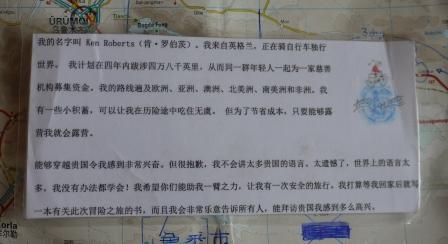 ÜRÜMQI
我的名字叫 Ken Roberts（肯·罗伯茨）。我来自英格兰，正在骑自行车独行
世界。 我计划在四年内跋涉四万八千英里，从而同一群年轻人一起为一家慈善
机构募集资金。我的路线遍及欧洲、亚洲、澳洲、北美洲、南美洲和非洲。我
有一些小积蓄，可以让我在历险途中吃住无虞。 但为了节省成本，只要能够露
营我就会露营。
能够穿越贵国令我感到非常兴奋。但很抱歉，我不会讲太多贵国的语言。太遗憾了，世界上的语言太
多，我没有办法都学会！我希望你们能助我一臂之力，让我有一次安全的旅行。我打算等我回家后就写
一本有关此次冒险之旅的书，而且我会非常乐意告诉所有人，能拜访贵国我感到多么高兴。